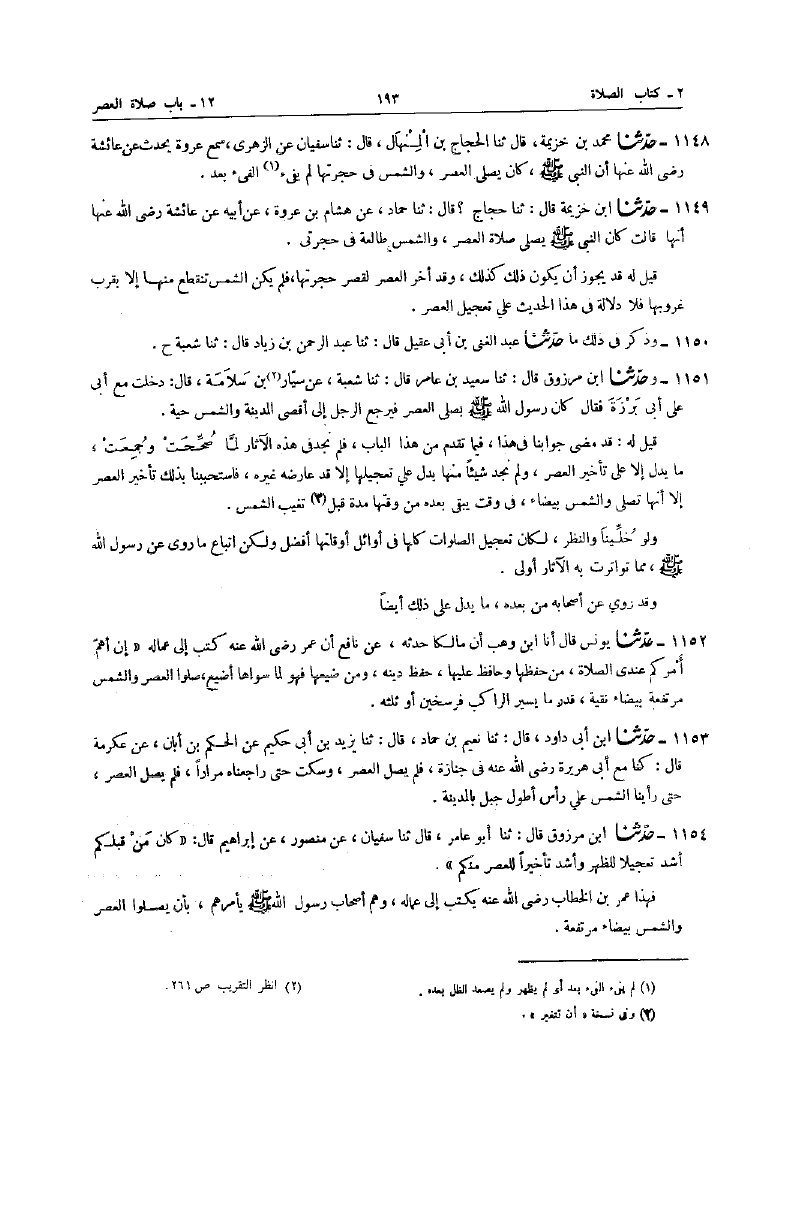 ٢ ـ كتاب الصلاة ١٩٣ ١٢ـ باب صلاة العصر
١١٤٨ ـ حدثنا محمد بن خزيمة، قال ثنا الحجاج بن الْمِنْهَال ، قال : ثنا سفيان عن الزهرى ، سمع عروة يحدث عن عائشة
رضى الله عنها أن النبى ﷺ ، كان يصلى العصر ، والشمس فى حجرتها لم يفىء (١) الفىء بعد .
١١٤٩ ـ حدثنا ابن خزيمة قال : ثنا حجاج ؟ قال : ثنا حماد ، عن هشام بن عروة ، عن أبيه عن عائشة رضى الله عنها
أنها قالت كان النبى ﷺ يصلى صلاة العصر ، والشمس طالعة فى حجرتى .
قيل له قد يجوز أن يكون ذلك كذلك ، وقد أخر العصر لقصر حجرتها، فلم يكن الشمس تنقطع منها إلا بقرب
غروبها فلا دلالة فى هذا الحديث علي تعجيل العصر .
١١٥٠ ـ وذكر فى ذلك ما حدثنا عبد الغنى بن أبى عقيل قال : ثنا عبد الرحمن بن زياد قال : ثنا شعبة ح .
١١٥١ ـ وحدثنا ابن مرزوق قال : ثنا سعيد بن عامر قال : ثنا شعبة ، عن سيّار (٢) بن سَلاَمَة ، قال: دخلت مع أبى
على أبى بَرْزَةَ فقال كان رسول الله ﷺ يصلى العصر فيرجع الرجل إلى أقصى المدينة والشمس حية .
قيل له : قد مضى جوابنا فى هذا ، فيما تقدم من هذا الباب ، فلم نجد فى هذه الآثار لمَّا صُحِّحَتْ وجُمِعَتْ ،
ما يدل إلا على تأخير العصر ، ولم نجد شيئاً منها يدل علي تعجيلها إلا قد عارضه غيره ، فاستحببنا بذلك تأخير العصر
إلا أنها تصلى والشمس بيضاء ، فى وقت يبقى بعده من وقتها مدة قبل (٣) تغيب الشمس .
ولو خُلِّينا والنظر ، لكان تعجيل الصلوات كلها فى أوائل أوقاتها أفضل ولكن اتباع ما روى عن رسول الله
ﷺ ، مما تواترت به الآثار أولى .
وقد روي عن أصحابه من بعده ، ما يدل على ذلك أيضاً
١١٥٢ ـ حدثنا يونس قال أنا ابن وهب أن مالكا حدثه ، عن نافع أن عمر رضى الله عنه كتب إلى عماله « إن أهمّ
أمركم عندى الصلاة ، من حفظها وحافظ عليها ، حفظ دينه ، ومن ضيعها فهو لما سواها أضيع، صلوا العصر والشمس
مرتفعة بيضاء نقية ، قدر ما يسير الراكب فرسخين أو ثلثه .
١١٥٣ ـ حدثنا ابن أبى داود ، قال : ثنا نعيم بن حماد ، قال : ثنا يزيد بن أبى حكيم عن الحكم بن أبان ، عن عكرمة
قال : كنا مع أبى هريرة رضى الله عنه فى جنازة ، فلم يصل العصر ، وسكت حتى راجعناه مراراً ، فلم يصل العصر ،
حتى رأينا الشمس علي رأس أطول جبل بالمدينة .
١١٥٤ ـ حدثنا ابن مرزوق قال : ثنا أبو عامر ، قال ثنا سفيان ، عن منصور ، عن إبراهيم قال: « كان مَنْ قبلكم
أشد تعجيلا للظهر وأشد تأخيراً للعصر منكم » .
فهذا عمر بن الخطاب رضى الله عنه يكتب إلى عماله ، وهم أصحاب رسول الله ﷺ يأمرهم ، بأن يصلوا العصر
والشمس بيضاء مرتفعة .
(١) لم يفىء الفىء بعد أى لم يظهر ولم يصعد الظل بعده . (٢) انظر التقريب ص ٢٦١.
(٣) وفى نسخة « أن تتغير » .